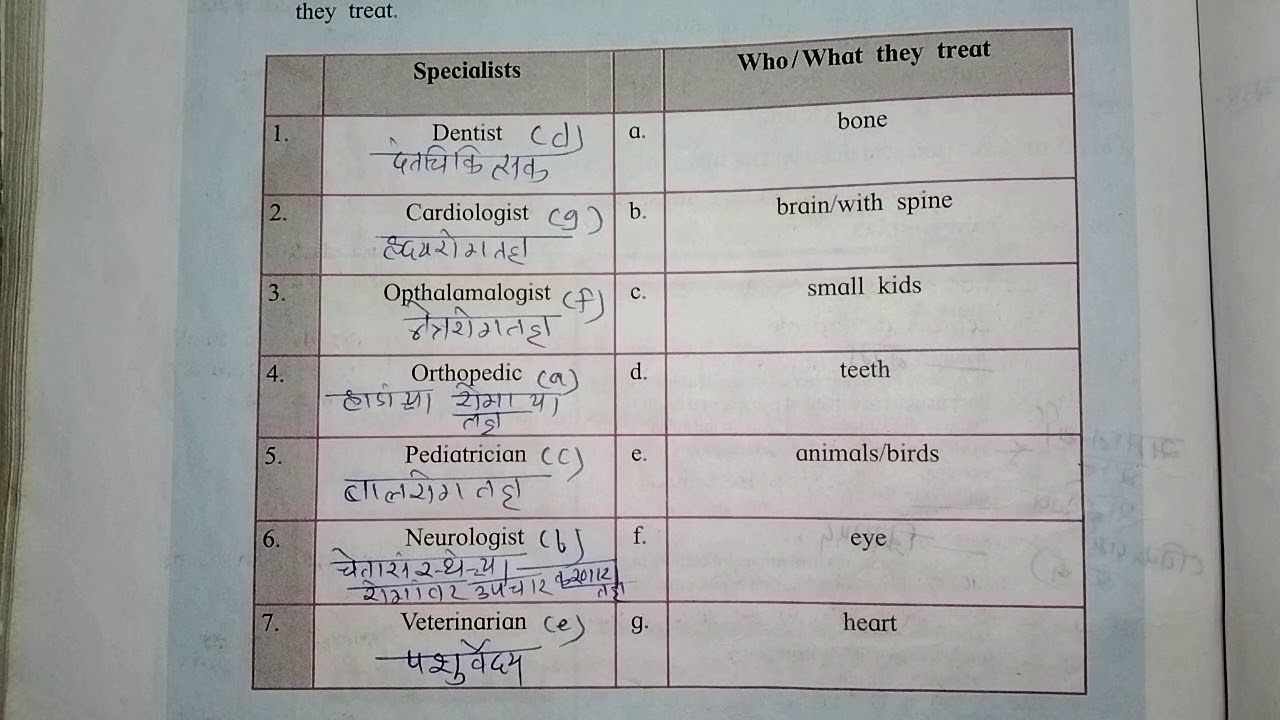 they treat.
Specialists Who/What they treat
1. Dentist (d) a. bone
दंतचिकित्सक
2. Cardiologist (g) b. brain/with spine
हृदयरोग तज्ञ
3. Opthalamalogist (f) c. small kids
नेत्ररोगतज्ञ
4. Orthopedic (a) d. teeth
हाडांच्या रोगाचा
तज्ञ
5. Pediatrician (c) e. animals/birds
बालरोग तज्ञ
6. Neurologist (b) f. eye
चेतासंस्थेच्या
रोगांवर उपचार करणारे
तज्ञ
7. Veterinarian (e) g. heart
पशुवैदय